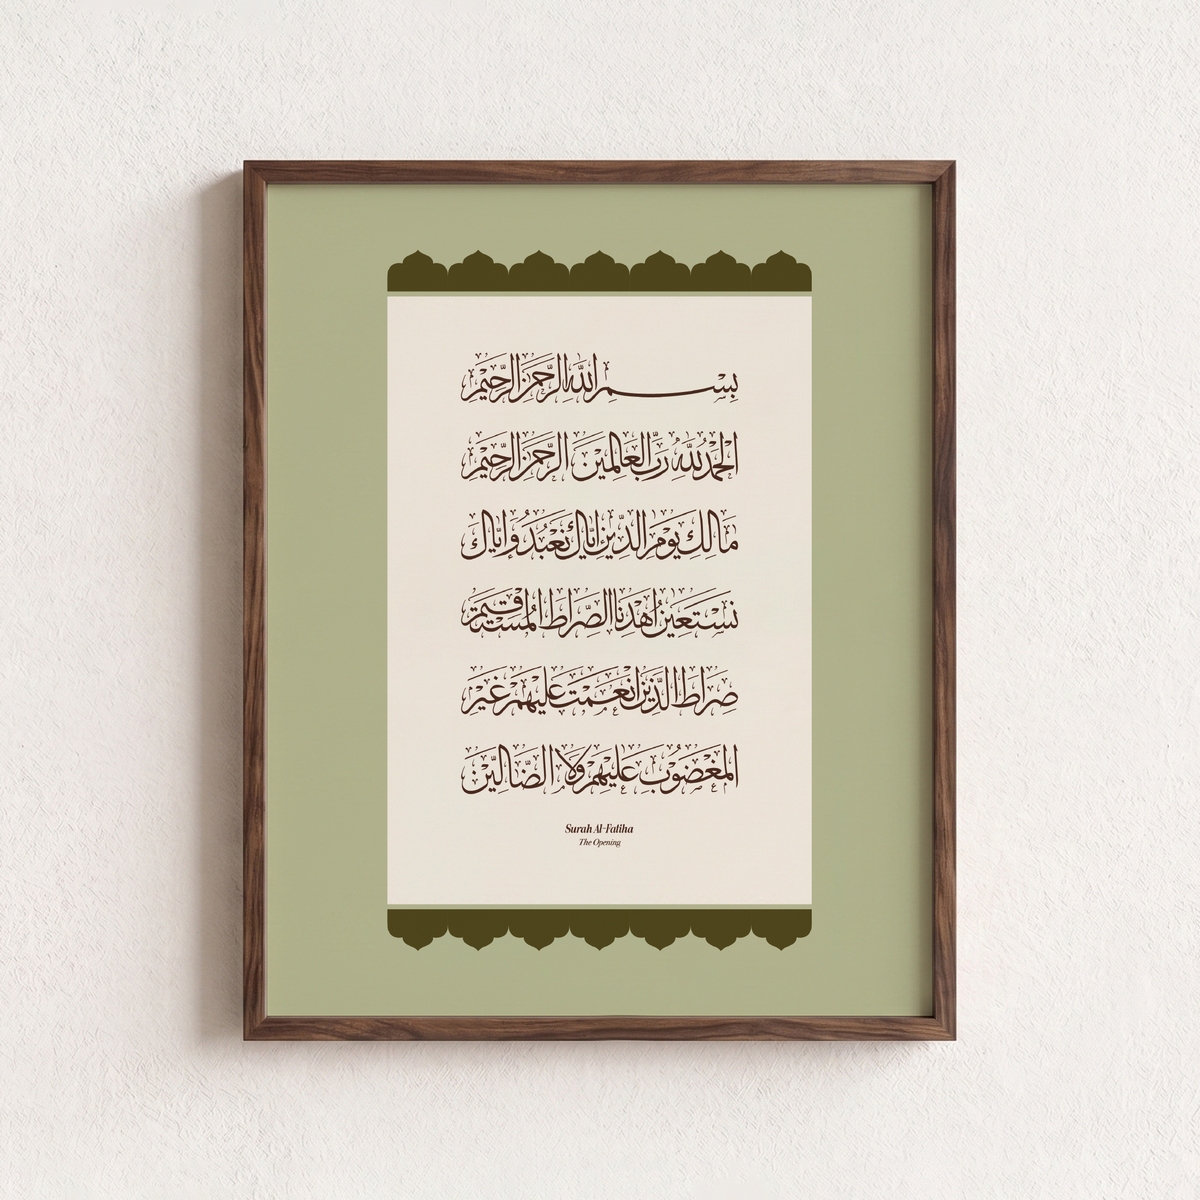 بِسْمِ اللَّهِ الرَّحْمَنِ الرَّحِيمِ
الْحَمْدُ لِلَّهِ رَبِّ الْعَالَمِينَ الرَّحْمَنِ الرَّحِيمِ
مَالِكِ يَوْمِ الدِّينِ إِيَّاكَ نَعْبُدُ وَإِيَّاكَ
نَسْتَعِينُ اهْدِنَا الصِّرَاطَ الْمُسْتَقِيمَ
صِرَاطَ الَّذِينَ أَنْعَمْتَ عَلَيْهِمْ غَيْرِ
الْمَغْضُوبِ عَلَيْهِمْ وَلَا الضَّالِّينَ
Surah Al-Fatiha
The Opening